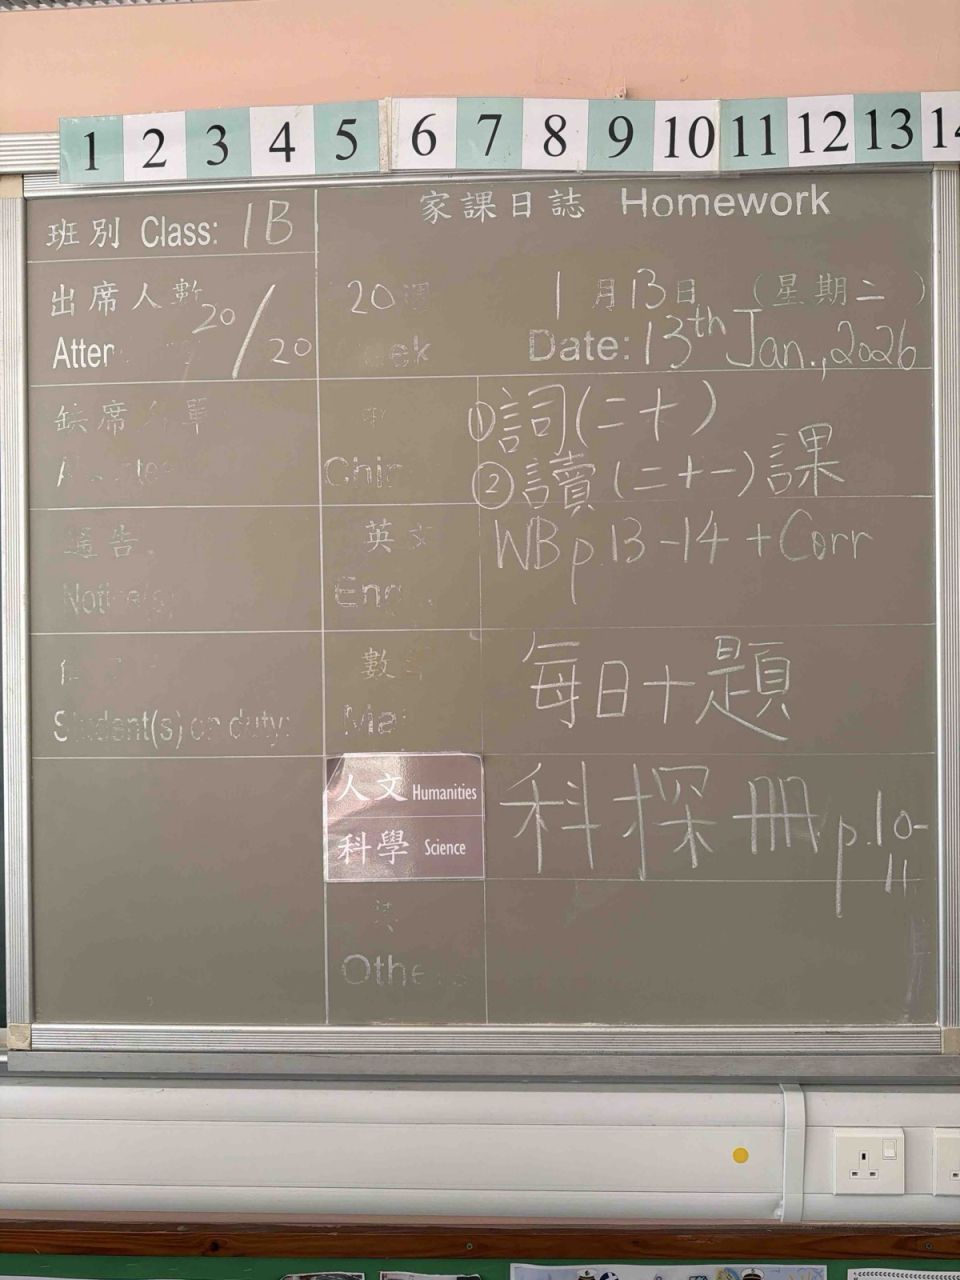 1 2 3 4 5 6 7 8 9 10 11 12 13 14
家課日誌 Homework
班別 Class: 1B
出席人數 20/20
20週 1月13日 (星期二)
Date: 13th Jan., 2026
缺席名單
① 詞(二十)
② 讀(二十一)課
通告
英文
WB p.13-14 + Corr
Student(s) on duty:
數
每日十題
人文 Humanities
科學 Science
科探冊 p.10-
11